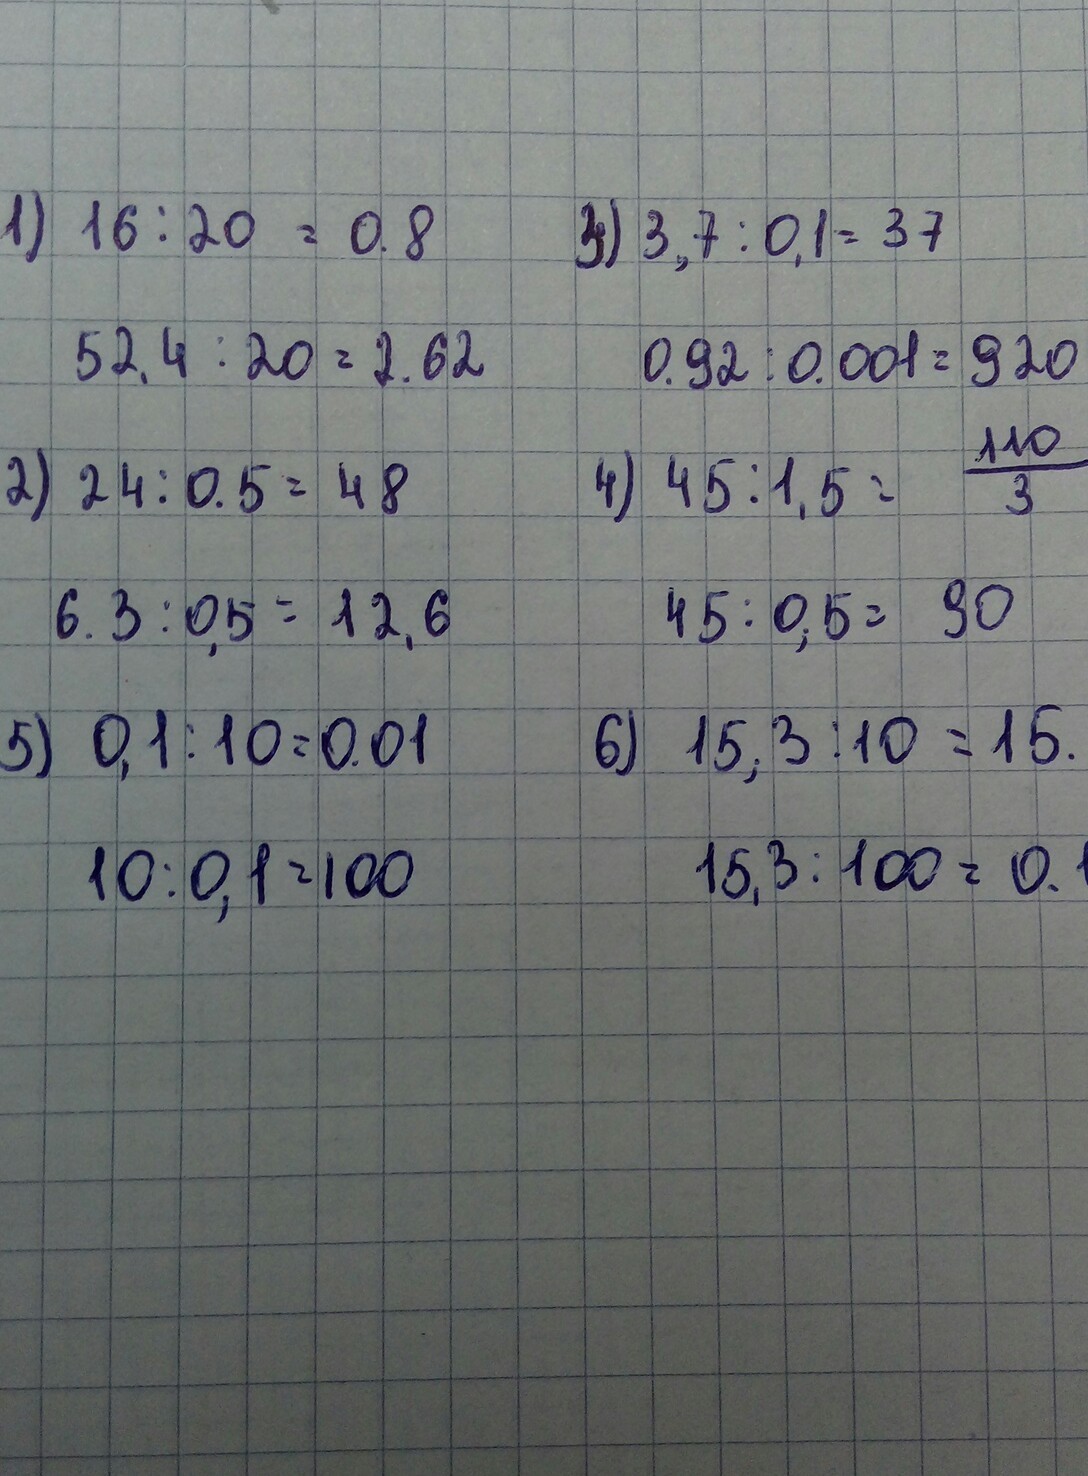 1) 16 : 20 = 0.8
52,4 : 20 = 2.62
2) 24 : 0.5 = 48
6.3 : 0,5 = 12,6
5) 0,1 : 10 = 0.01
10 : 0,1 = 100
3) 3,7 : 0,1 = 37
0.92 : 0.001 = 920
4) 45 : 1,5 = 110/3
45 : 0,5 = 90
6) 15,3 : 10 = 15.
15,3 : 100 = 0.1